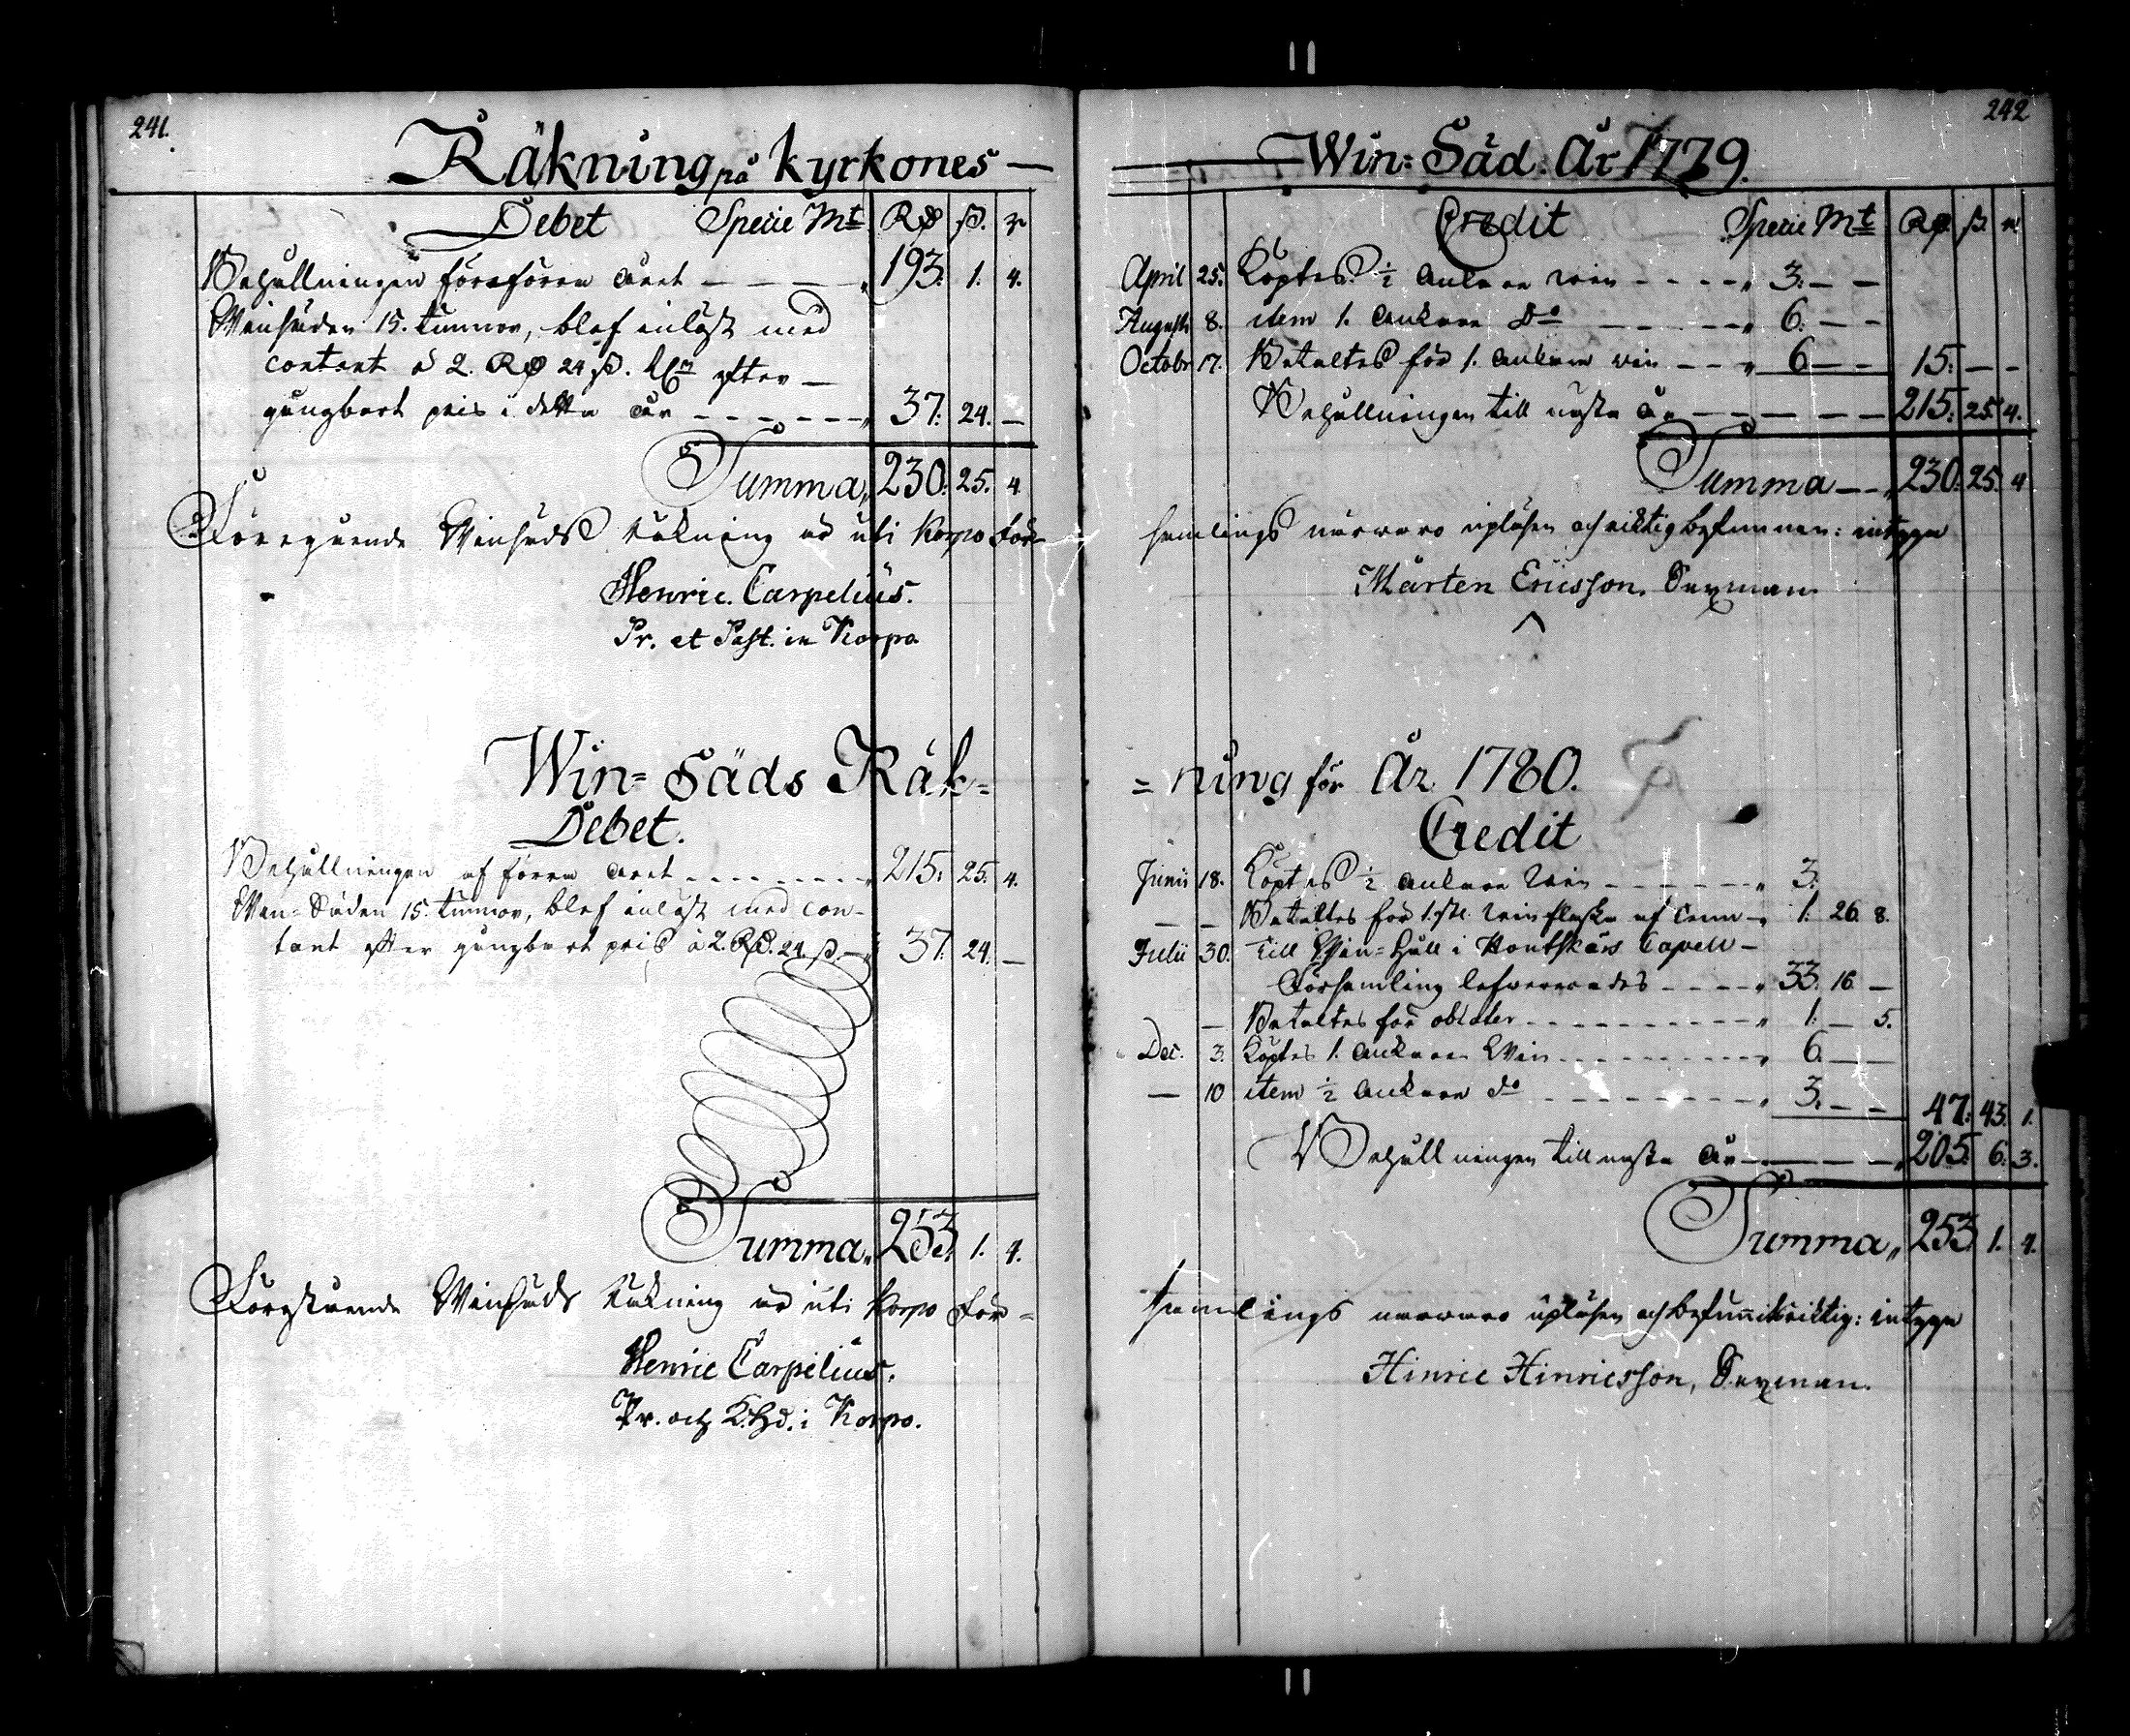 241.
Räkning på kyrkones
Debet Specie Mt. Rd ß. rr
Behållningen ifrån förra året 193. 1. 4.
Winsäden 15. tunnor, blef inlöst med
contant à 2. Rd 24 ß. efter
gångbart pris i detta år 37. 24. —
Summa 230. 25. 4
Föregående Winsäds räkning är uti Korpo För-
Henric. Carpelius.
Pr. et Past. in Korpo.
Win= Säds Räk=
Debet.
Behållningen af förra året 215. 25. 4.
Win= Säden 15. tunnor, blef inlöst med con-
tant efter gångbart pris à 2. Rd. 24. ß. 37. 24. —
Summa 253. 1. 4.
Föregående Winsäds räkning är uti Korpo För=
Henric Carpelius.
Pr. och K.Hd. i Korpo.
242
Win= Säd. År 1779.
Credit Specie Mt. Rd. ß. rr
April 25. Köptes ½ Ankare win 3. — —
Augusti 8. item 1. Ankare Do 6. — —
Octobr 17. Betaltes för 1. Ankare win 6 — — 15. — —
Behållningen till nästa år 215. 25. 4.
Summa 230. 25. 4
samlings närwaro upläsen och riktig befunnen: intyga
Mårten Ericsson. Sexman.
= ning för År 1780.
Credit
Junii 18. Köptes ½ Ankare Win 3.
— — Betaltes för 1. st. winflaska af Tenn 1. 26. 8.
Julii 30. Till Win= Håll i Houtskärs Capell
Församling lefwererades 33. 16. —
— Betaltes för oblater 1. — 5.
Dec. 3. Köptes 1. Ankare Win 6. — —
— 10 item ½ Ankare do 3. — — 47. 43. 1.
Behållningen till nästa år 205. 6. 3.
Summa 253. 1. 4.
samlings närwaro upläsen och befunnits riktig: intyga
Hinric Hinricsson, Sexman.